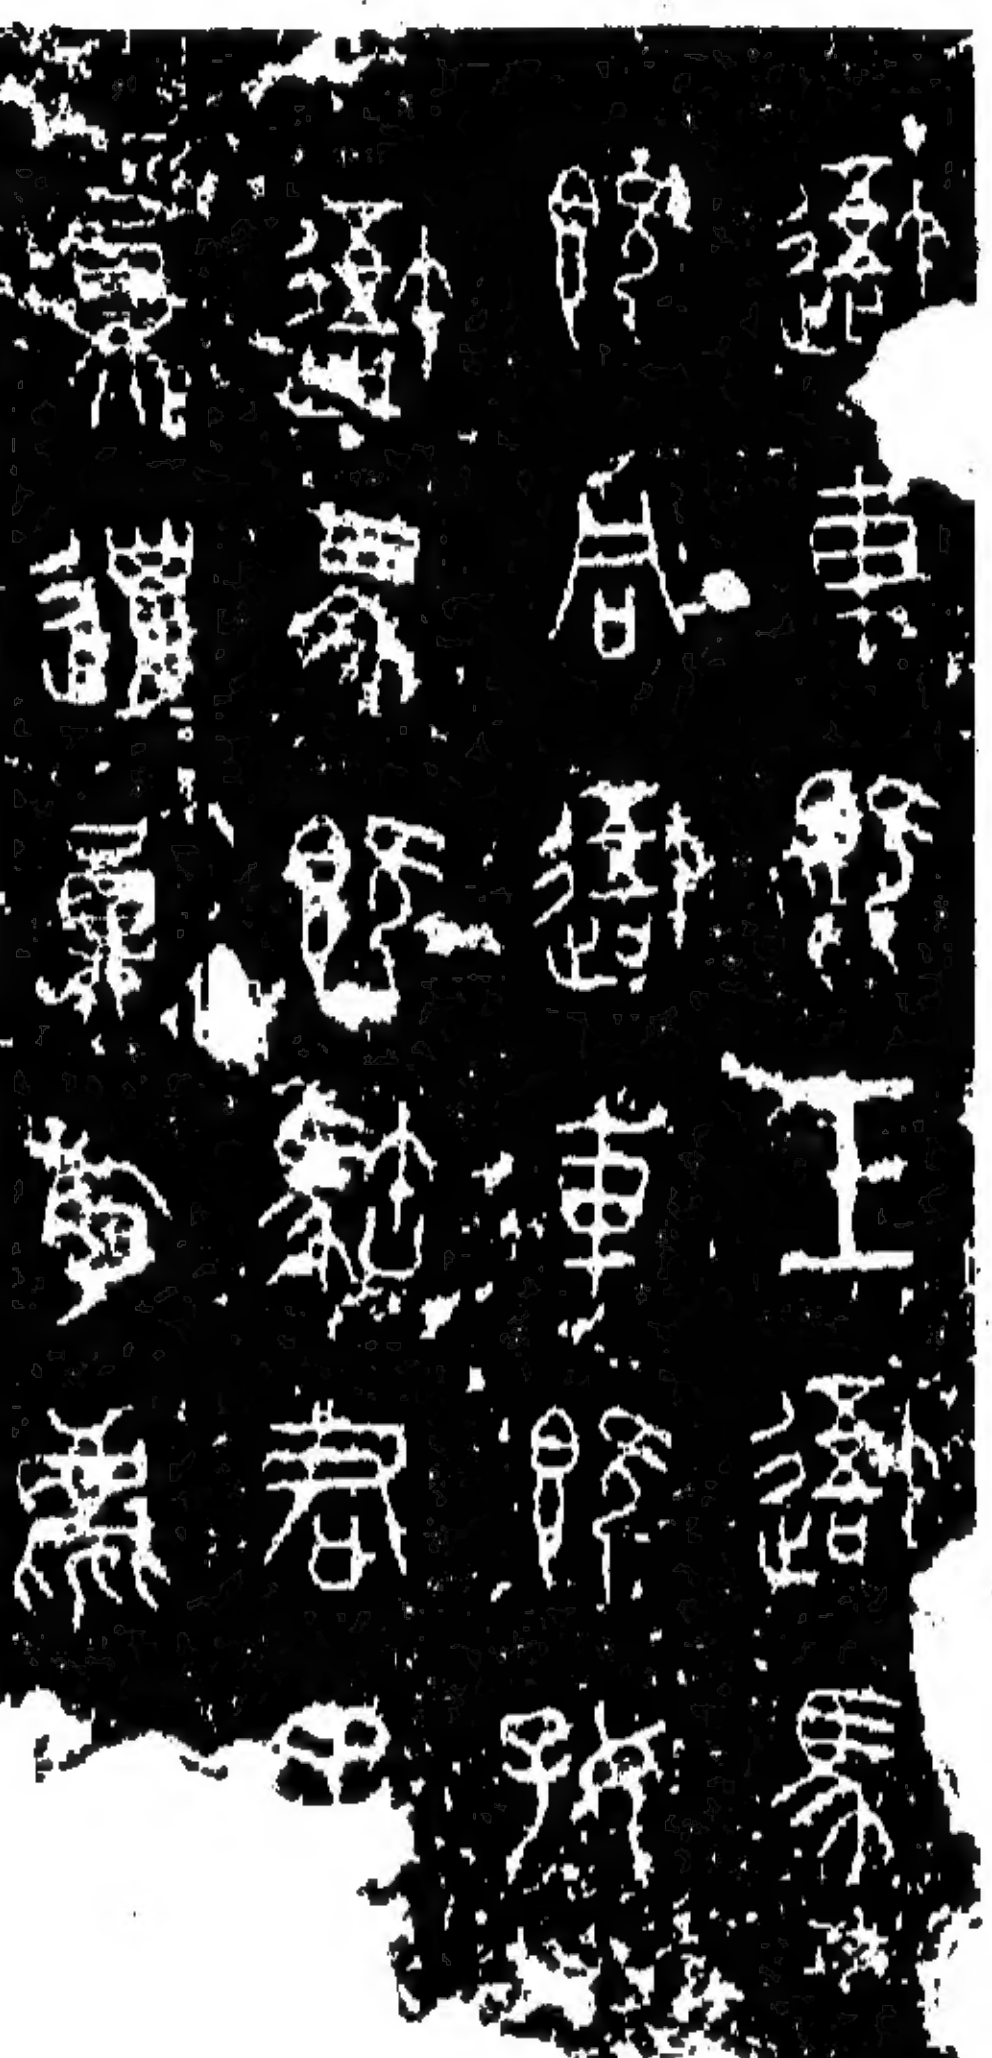 吾車既工吾馬
既同吾車既好
吾馬既君子
員邋員斿麀